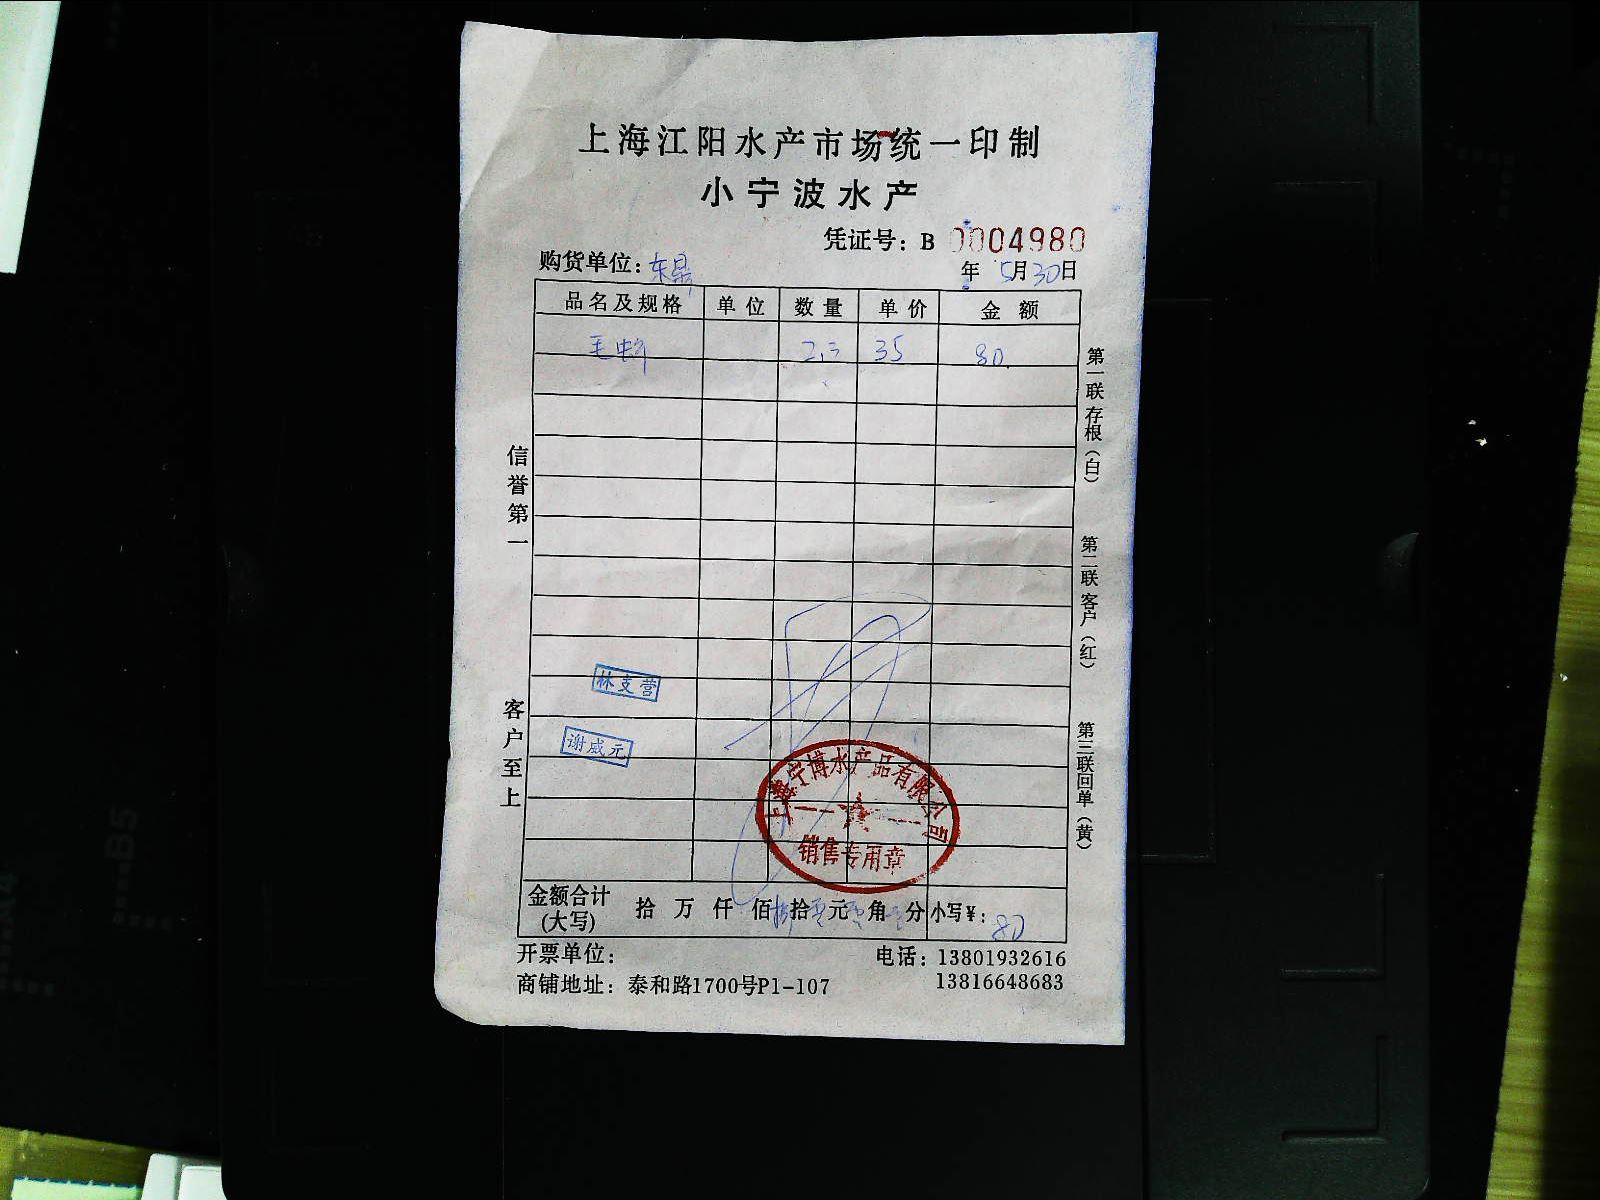 上海江阳水产市场统一印制
小宁波水产
凭证号：B 0004980
购货单位：东鼎 年 5月30日
品名及规格 单位 数量 单价 金额
毛蚶 2.3 35 80
信誉第一
客户至上
第一联存根（白）
第二联客户（红）
第三联回单（黄）
林支营
谢威元
上海宁博水产品有限公司
销售专用章
金额合计(大写) 拾 万 仟 佰 拾 元 角 分 小写¥：80
开票单位： 电话：13801932616
商铺地址：泰和路1700号P1-107 13816648683
A4
B5